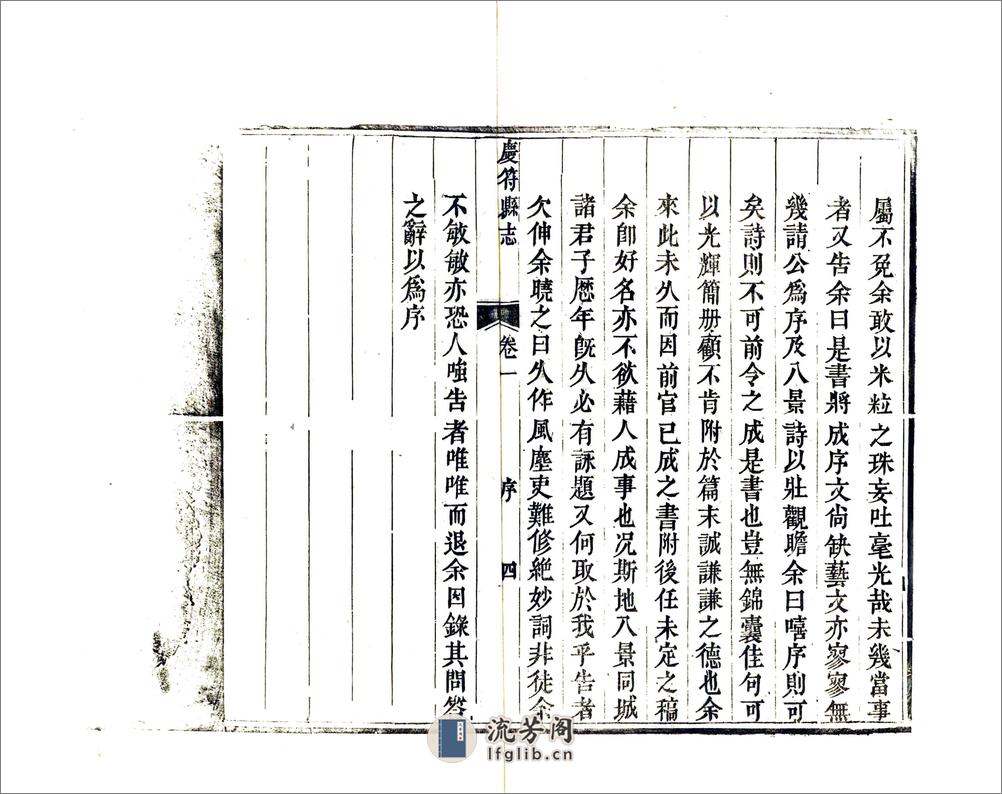 屬不免余敢以米粒之珠妄吐毫光哉未幾當事
者又告余曰是書將成序文尙缺藝文亦寥寥無
幾請公爲序及八景詩以壯觀瞻余曰嘻序則可
矣詩則不可前令之成是書也豈無錦囊佳句可
以光輝簡册顧不肯附於篇末誠謙謙之德也余
來此未久而因前官已成之書附後任未定之稿
余卽好名亦不欲藉人成事也况斯地八景同城
諸君子歷年旣久必有詠題又何取於我乎告者
欠伸余曉之曰久作風塵吏難修絶妙詞非徒余
慶符縣志
卷一
序
四
不敏敏亦恐人嗤告者唯唯而退余因錄其問答
之辭以爲序
流芳阁
lfglib.cn